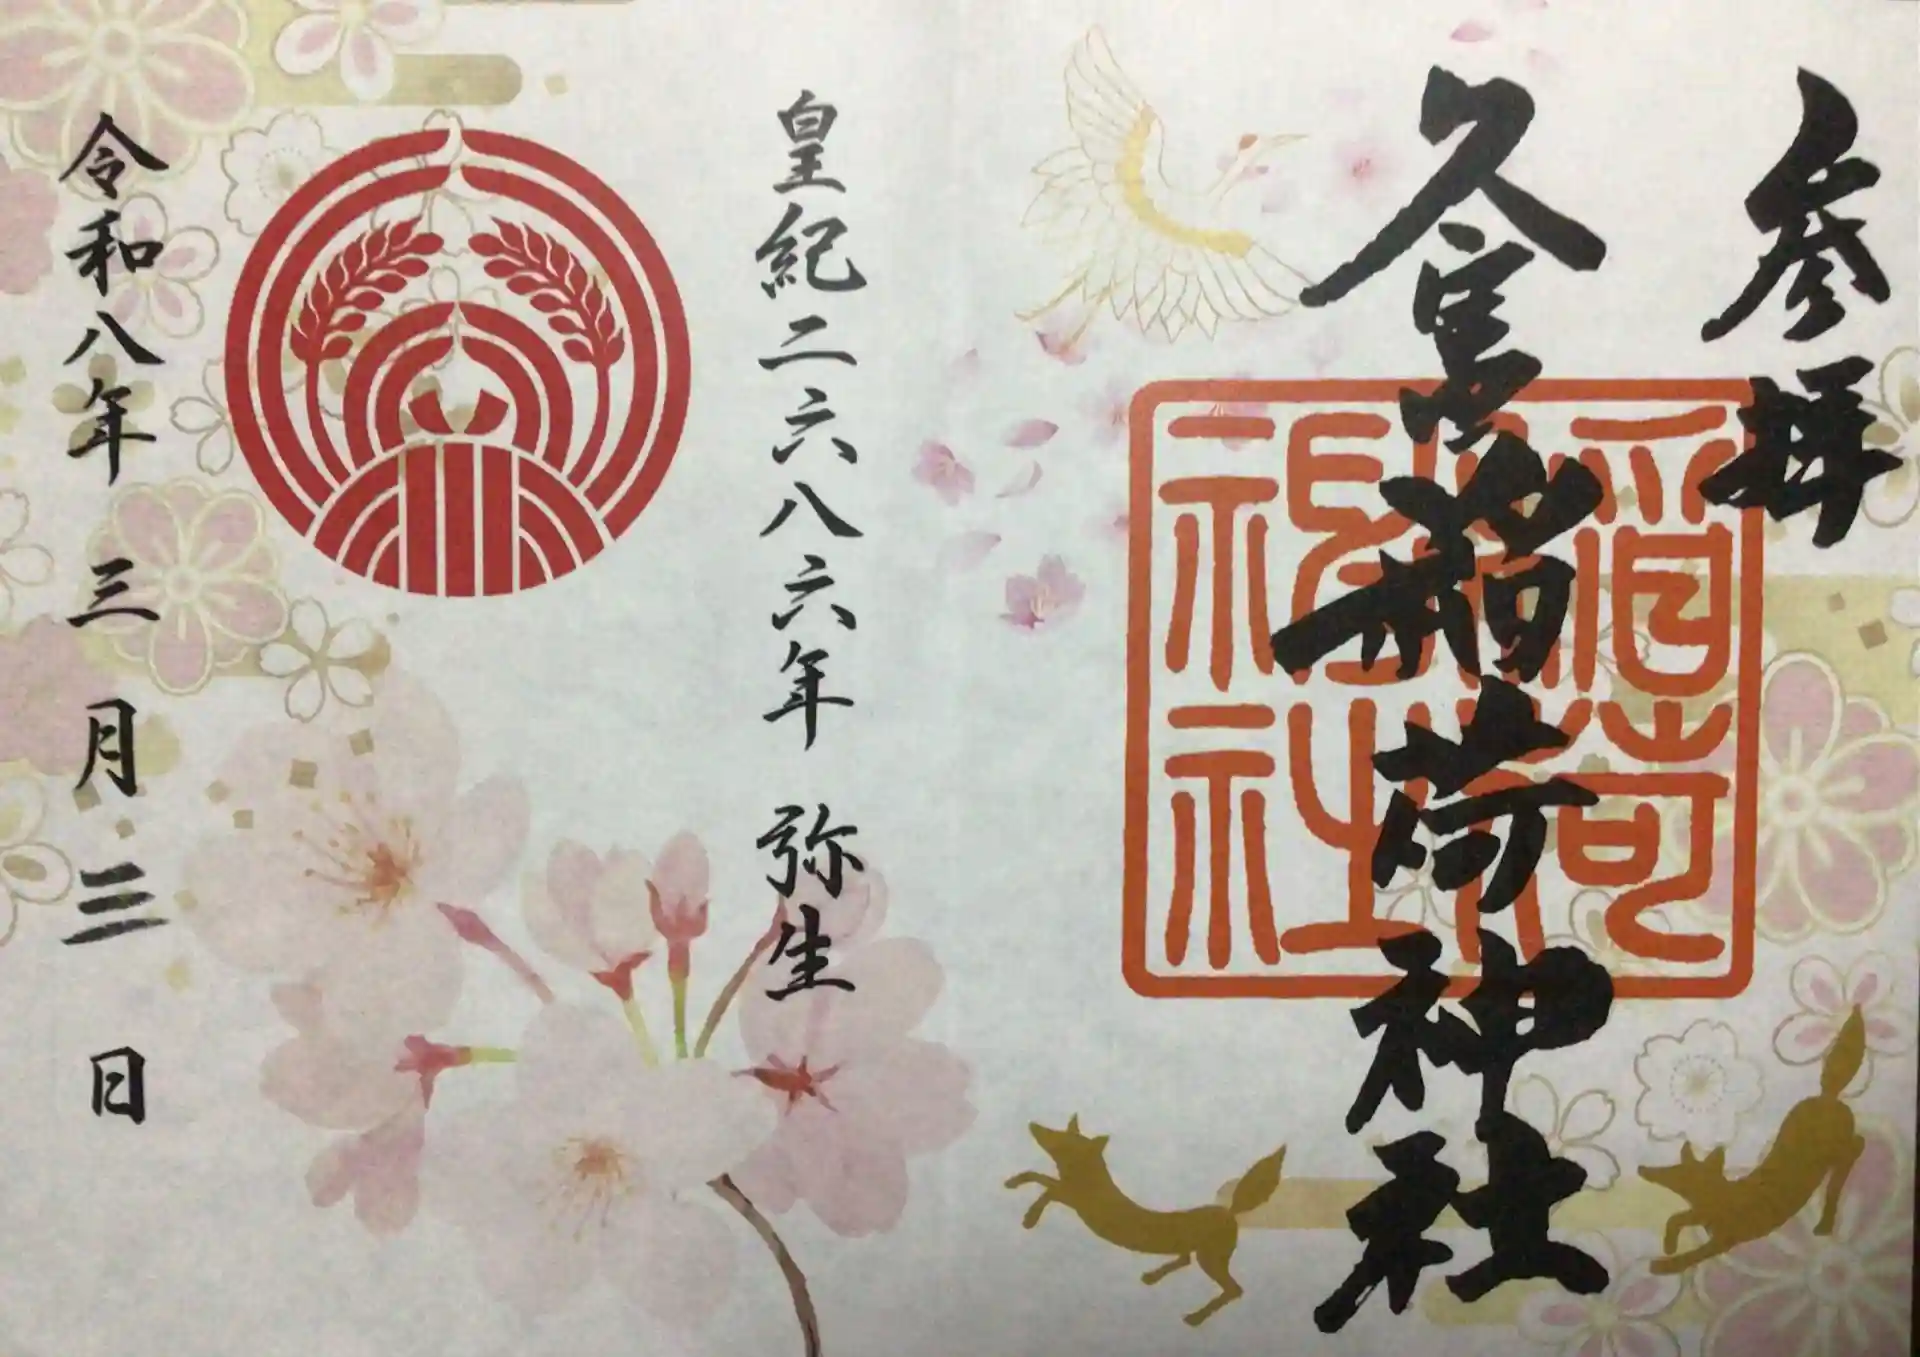 参拝
久富稲荷神社
稲荷
神社
皇紀二六八六年 弥生
令和八年 三月三日